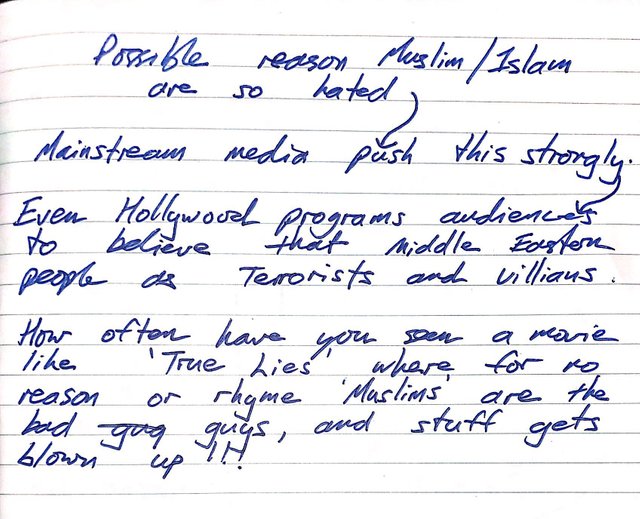 Possible reason Muslim/Islam
are so hated
Mainstream media push this strongly.
Even Hollywood programs audiences
to believe that middle Eastern
people as Terrorists and villians.
How often have you seen a movie
like 'True Lies' where for no
reason or rhyme 'Muslims' are the
bad guy guys, and stuff gets
blown up!!!